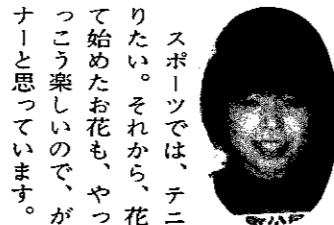 スポーツでは、テニ
りたい。それから、花
て始めたお花も、やっ
っこう楽しいので、が
ナーと思っています。